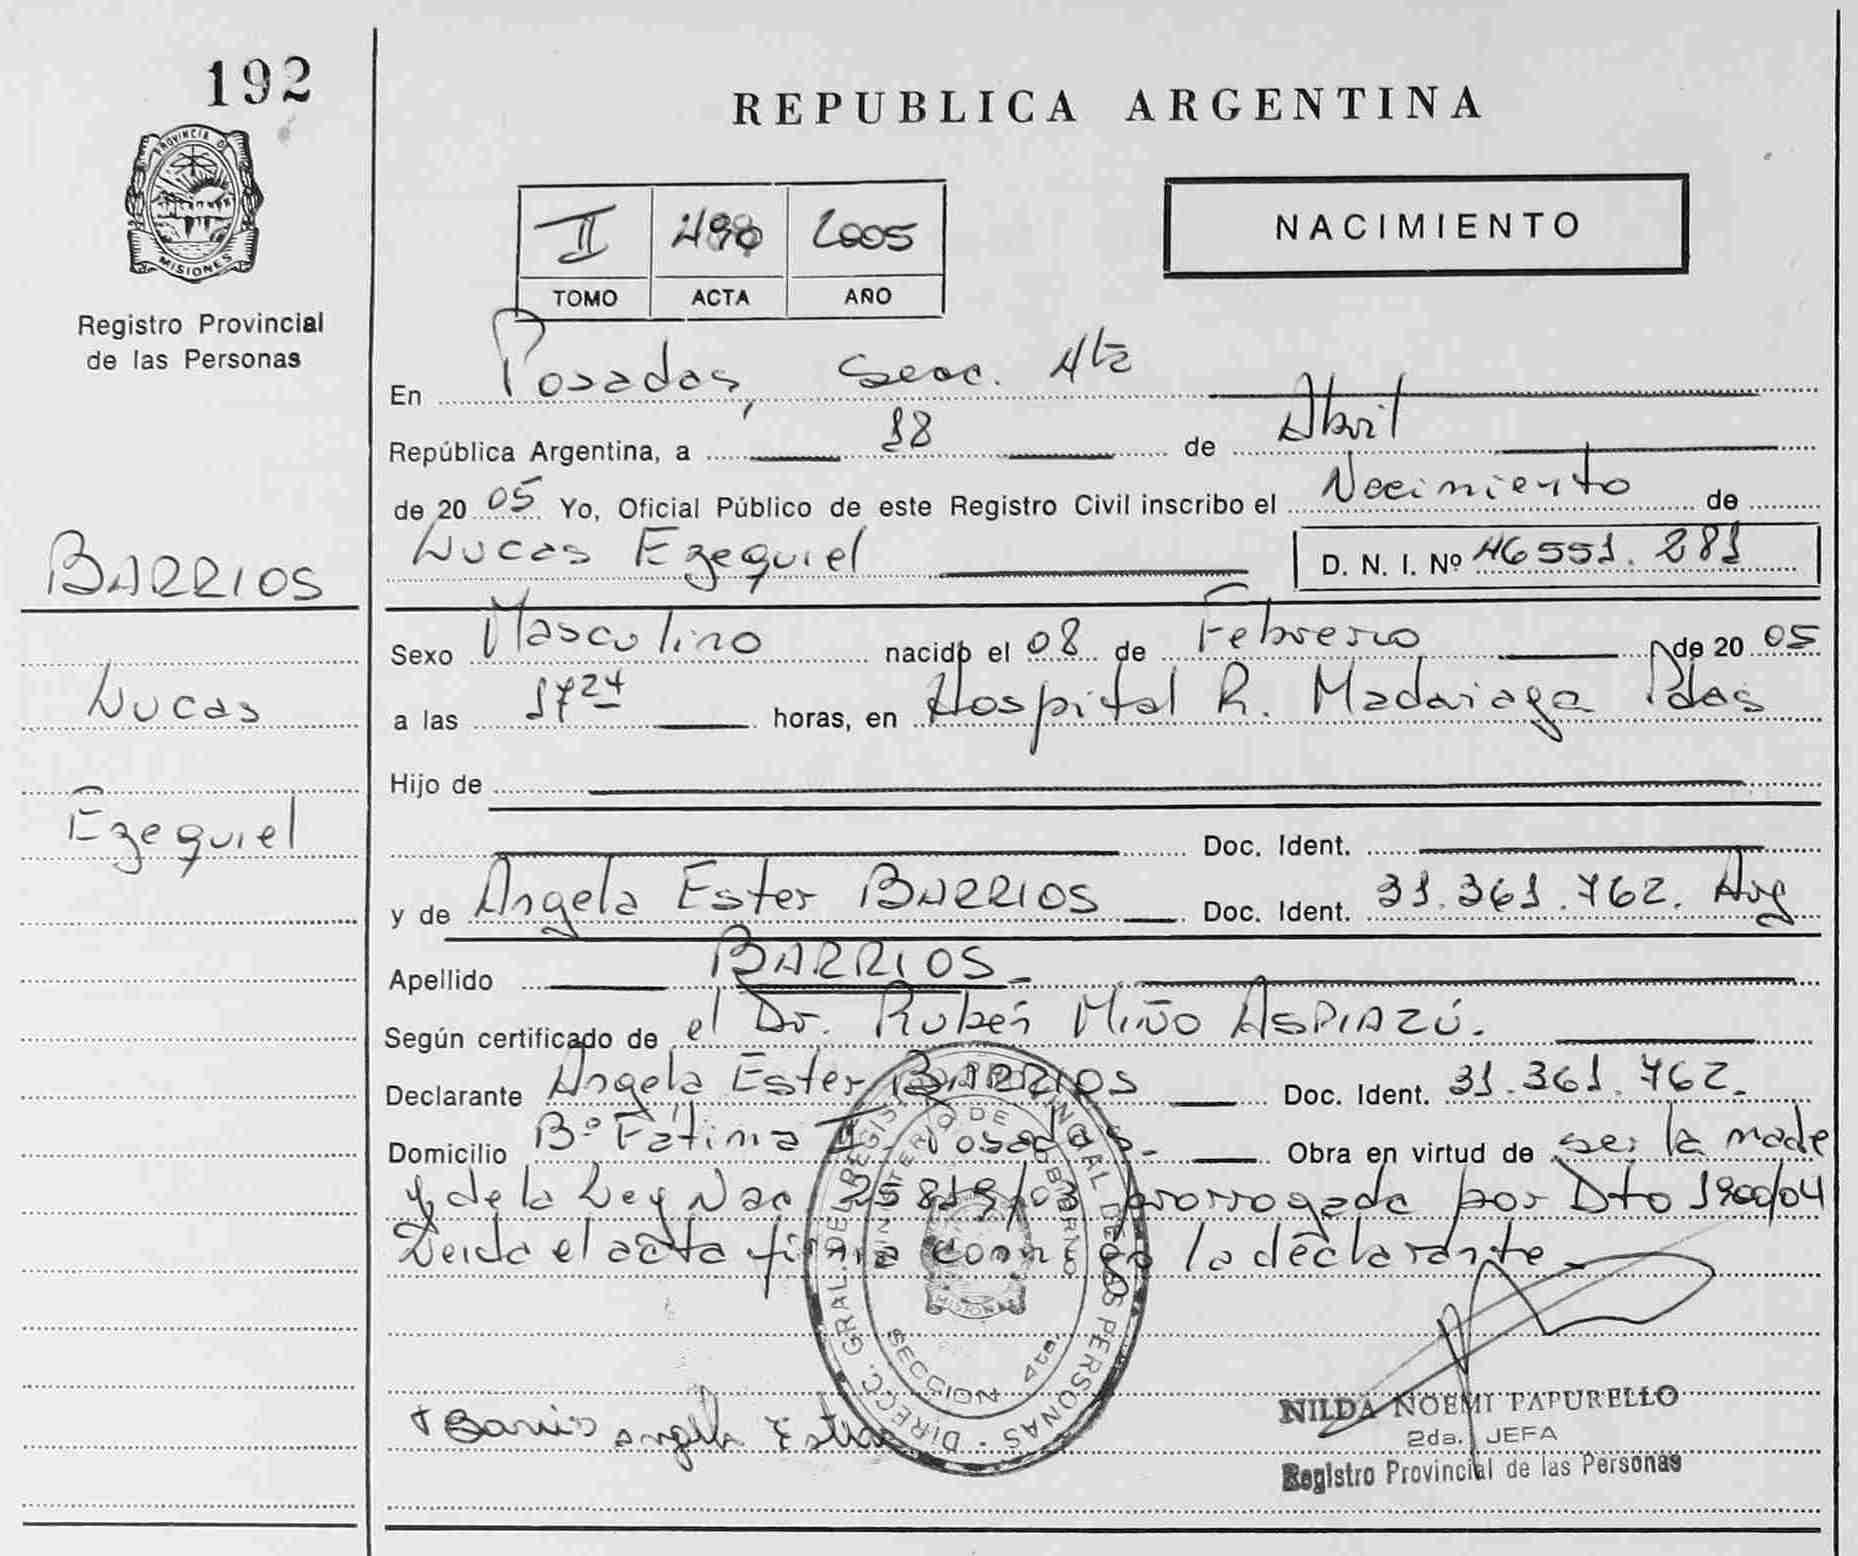 192
PROVINCIA DE
MISIONES
Registro Provincial
de las Personas
BARRIOS
Lucas
Ezequiel
REPUBLICA ARGENTINA
II 2005
TOMO ACTA AÑO
NACIMIENTO
En Posadas, Secc. 4ta
República Argentina, a 18 de Abril
de 20 05 Yo, Oficial Público de este Registro Civil inscribo el Nacimiento de
Lucas Ezequiel D. N. I. Nº 46551.281
Sexo Masculino nacido el 08 de Febrero de 20 05
a las 1724 horas, en Hospital R. Madariaga Pdas
Hijo de
Doc. Ident.
y de Angela Ester BARRIOS Doc. Ident. 31.361.762. Arg
Apellido BARRIOS
Según certificado de el Dr. Rubén Miño ASPIAZÚ.
Declarante Angela Ester BARRIOS Doc. Ident. 31.361.762.
Domicilio Bº Fátima II Posadas.- Obra en virtud de ser la madre
y de la Ley Nac 25819/03 prorrogada por Dto 1900/04
Leida el acta firma conmigo la declarante
DIRECC. GRAL. DEL REGISTRO PROVINCIAL DE LAS PERSONAS
MINISTERIO DE GOBIERNO
MISIONES
SECCION 4ta.
Barrios Angela Ester
NILDA NOEMI PAPURELLO
2da. JEFA
Registro Provincial de las Personas